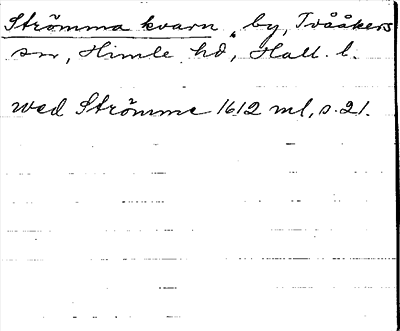 Strömma kvarn, by, Tvååkers
sn, Himle hd, Hall. l.
wed Strömme 1612 ml, s. 21.